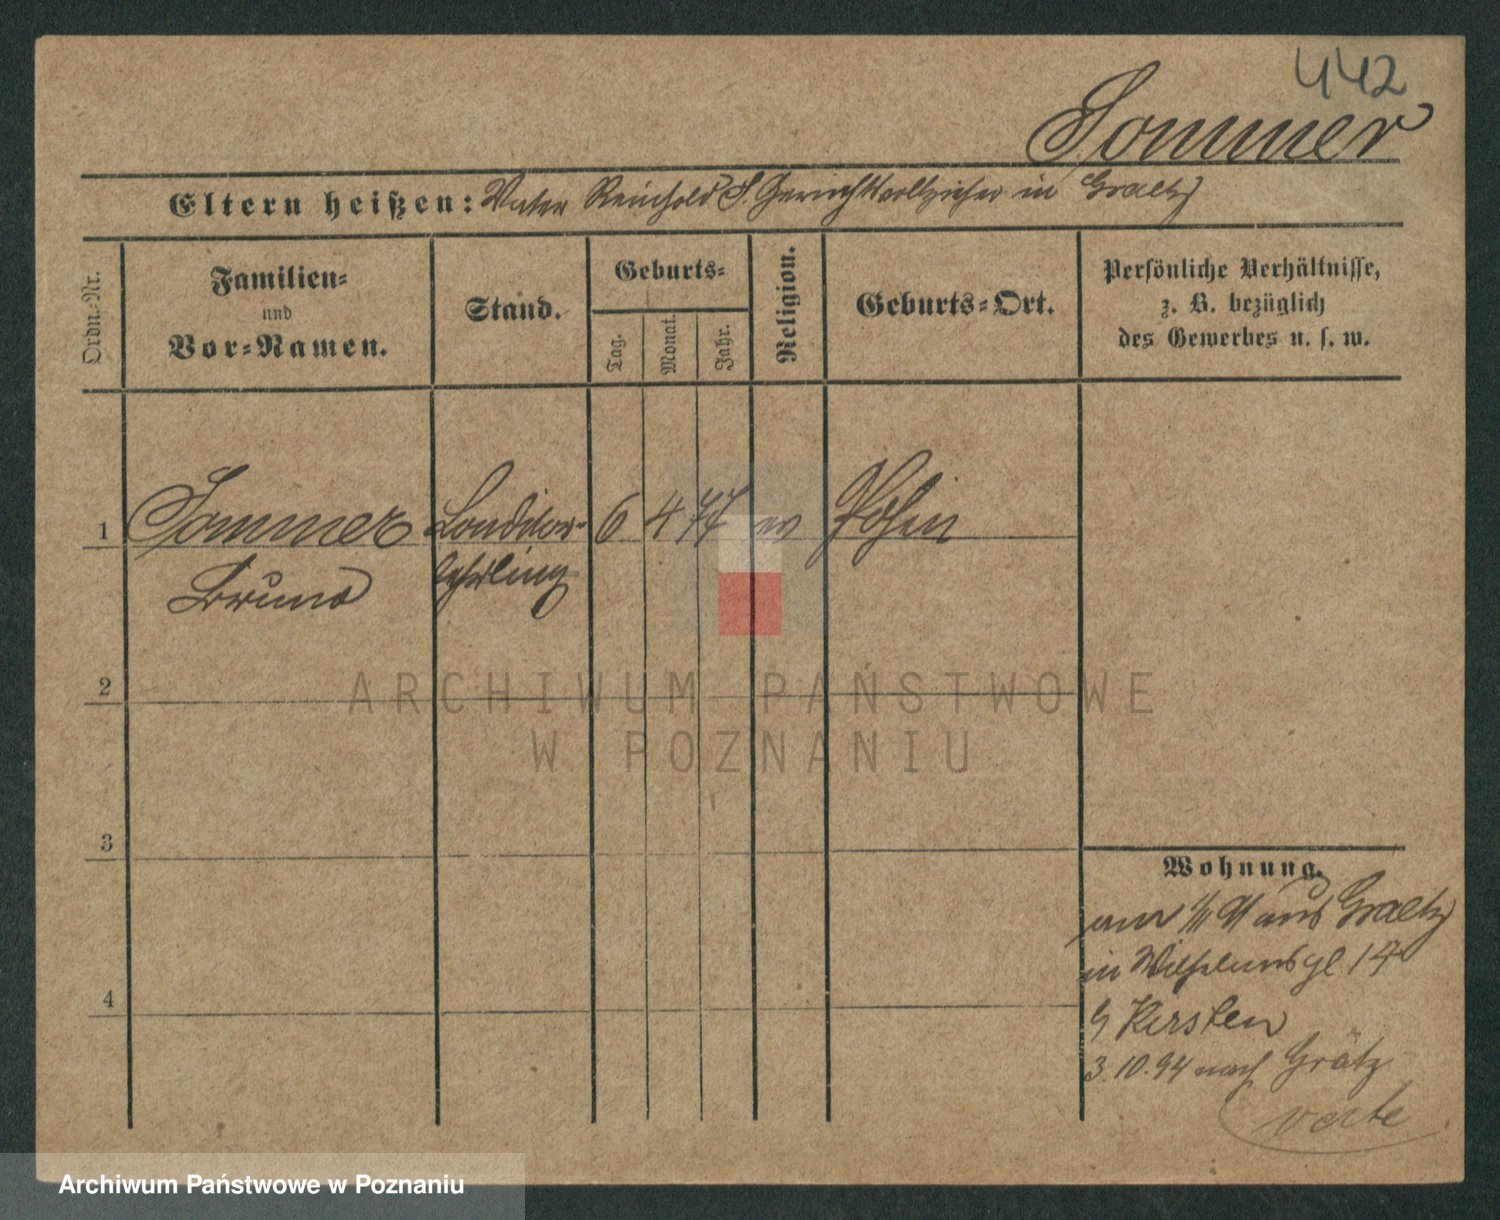 442
Sommer
Eltern heißen: Vater Reinhold S. Gerichtsvollzieher in Graetz
Ordn.-Nr.
Familien-
und
Vor-Namen.
Stand.
Geburts-
Tag.
Monat.
Jahr.
Religion.
Geburts-Ort.
Persönliche Verhältnisse,
z. B. bezüglich
des Gewerbes u. s. w.
1 Sommer Conditor- 6 4 77 ev Posen
Bruno lehrling
2
ARCHIWUM PAŃSTWOWE
W POZNANIU
3
4
Wohnung.
91 aus Graetz
in Wilhelmspl 17
Kersten
3.10.94 nach Grätz
verte
Archiwum Państwowe w Poznaniu